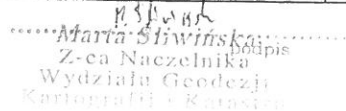 Marta Śliwińska
podpis
Z-ca Naczelnika
Wydziału Geodezji
Kartografii i Katastru